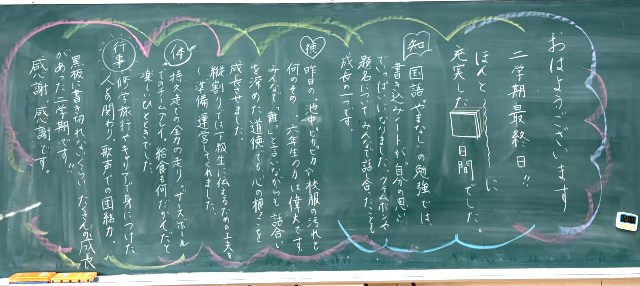 おはようございます
二学期最終日!!
ほんとーに
充実した 日間でした。
知 国語「やまなし」の勉強では、
書き込みシートが自分の思い
でいっぱいになりました。クラムボンや
題名について、みんなで話合ったことも
成長の一つです。
徳
何のその。六年生の力は偉大です。
みんなで難しいと言いながらも話合い
を深めた道徳でも心の根っこを
成長させました。
縦割りでは下級生に伝えるための工夫を
し準備、運営してくれました。
体 持久走での全力の走り、
でのチームプレイ。給食も何だかんだで
楽しいひとときでした。
行事 修学旅行やキャリアで身につけた
人との関わり、歌声での団結力。
黒板に書き切れないくらい、たくさんの成長
があった二学期です!!
感謝、感謝です。